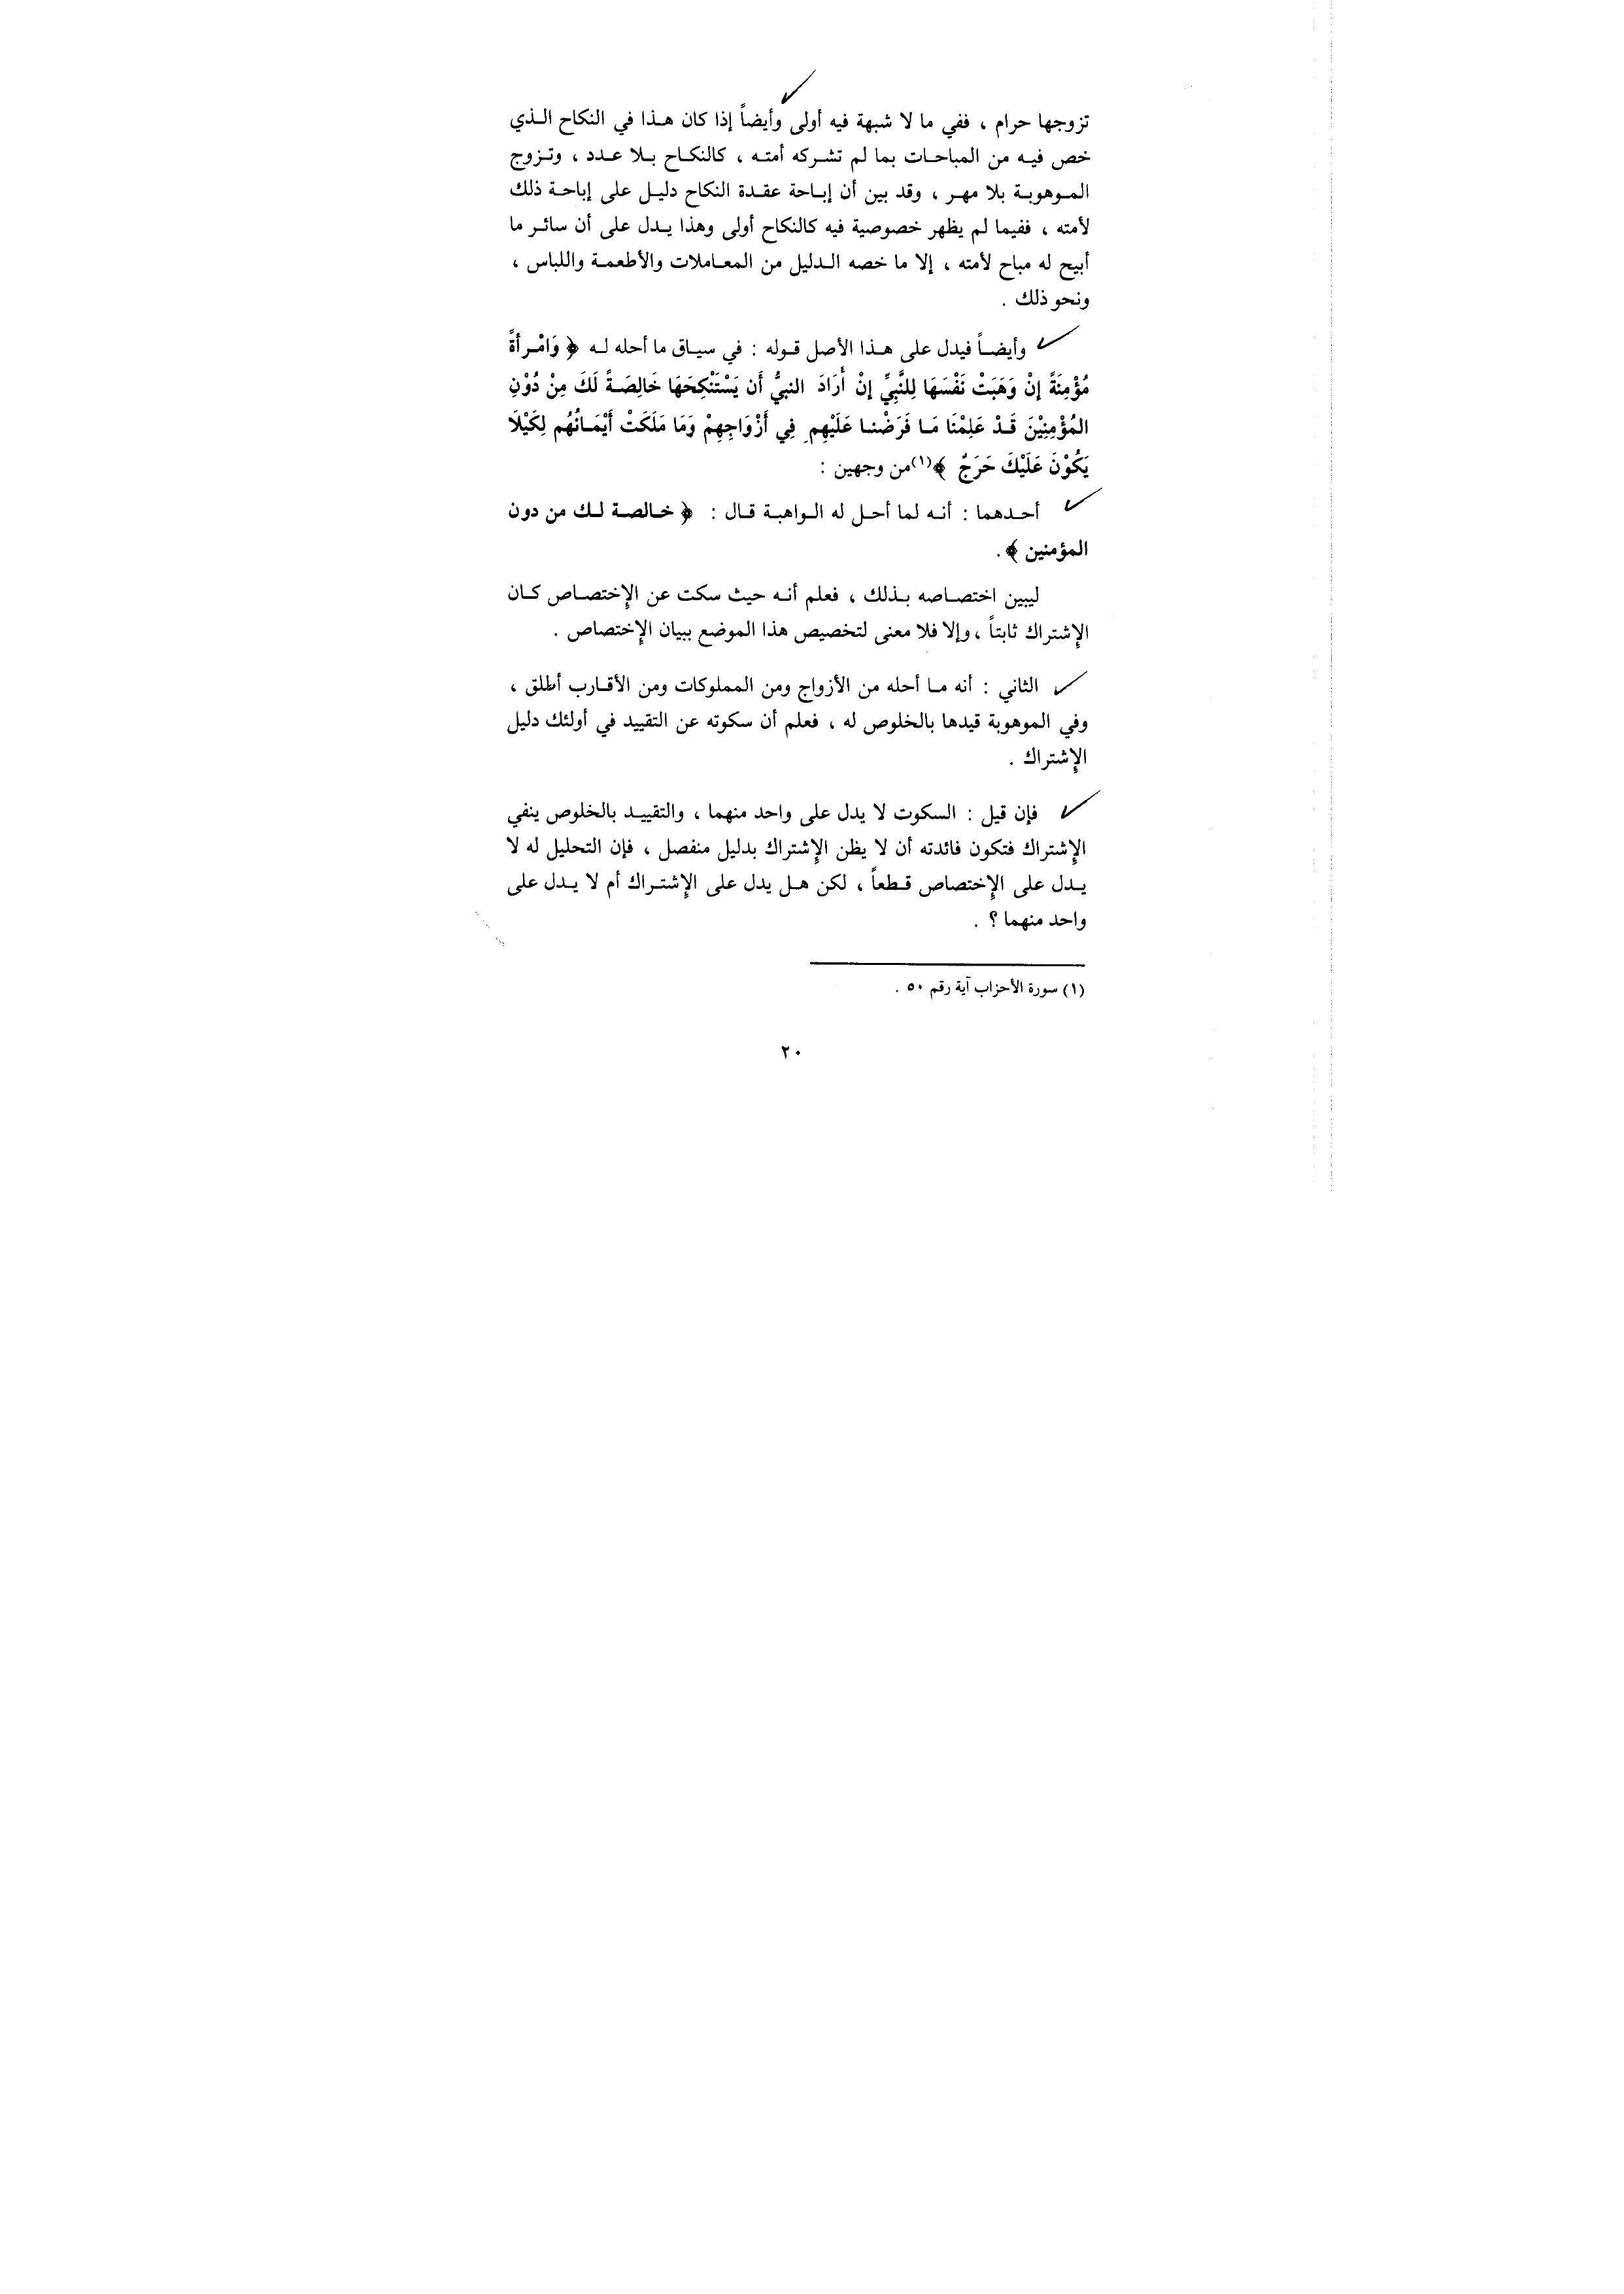 تزوجها حرام ، ففي ما لا شبهة فيه أولى وأيضاً إذا كان هـذا في النكاح الـذي
خص فيـه من المباحـات بما لم تشـركه أمتـه ، كالنكـاح بـلا عـدد ، وتـزوج
المـوهوبـة بلا مهـر ، وقد بين أن إبـاحة عقـدة النكاح دليـل على إباحـة ذلك
لأمته ، ففيما لم يظهر خصوصية فيه كالنكاح أولى وهذا يـدل على أن سائـر ما
أبيح له مباح لأمته ، إلا ما خصه الـدليل من المعـاملات والأطعمـة واللباس ،
ونحو ذلك .
وأيضـاً فيدل على هـذا الأصل قـوله : في سيـاق ما أحله لـه ﴿ وَامْـرأةً
مُؤْمِنَةً إنْ وَهَبَتْ نَفْسَهَا لِلنَّبِيِّ إنْ أَرَادَ النبيُّ أَن يَسْتَنْكِحَهَا خَالِصَـةً لَكَ مِنْ دُوْنِ
المُؤْمِنِيْنَ قَـدْ عَلِمْنَا مَـا فَرَضْنـا عَلَيْهِم فِي أَزْوَاجِهِمْ وَمَا مَلَكَتْ أَيْمَـانُهُم لِكَيْلَا
يَكُوْنَ عَلَيْكَ حَرَجٌ ﴾(١)من وجهين :
أحـدهما : أنـه لما أحـل له الـواهبـة قـال : ﴿ خـالصـة لـك من دون
المؤمنين ﴾.
ليبين اختصـاصه بـذلك ، فعلم أنـه حيث سكت عن الإختصـاص كـان
الإشتراك ثابتاً ، وإلا فلا معنى لتخصيص هذا الموضع ببيان الإختصاص .
الثاني : أنه مـا أحله من الأزواج ومن المملوكات ومن الأقـارب أطلق ،
وفي الموهوبة قيدها بالخلوص له ، فعلم أن سكوته عن التقييد في أولئك دليل
الإشتراك .
فإن قيل : السكوت لا يدل على واحد منهما ، والتقييـد بالخلوص ينفي
الإشتراك فتكون فائدته أن لا يظن الإشتراك بدليل منفصل ، فإن التحليل له لا
يـدل على الإختصاص قـطعاً ، لكن هـل يدل على الإشتـراك أم لا يـدل على
واحد منهما ؟ .
(١) سورة الأحزاب آية رقم ٥٠ .
٢٠